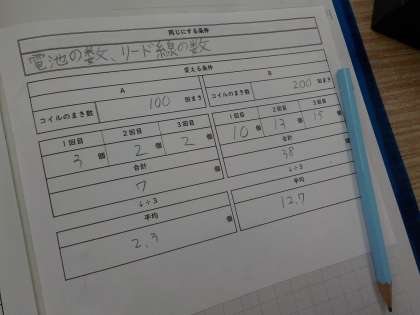 同じにする条件
電池の数、リード線の数
変える条件
A
B
コイルのまき数 100 回まき
コイルのまき数 200 回まき
1回目 2回目 3回目
3 個 2 個 2 個
合計
7 個
↓÷3
平均
2.3 個
1回目 2回目 3回目
10 個 13 個 15 個
合計
38 個
↓÷3
平均
12.7 個